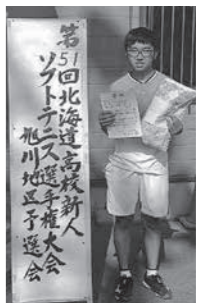 第51回北海道高校新人
ソフトテニス選手権大会
旭川地区予選会